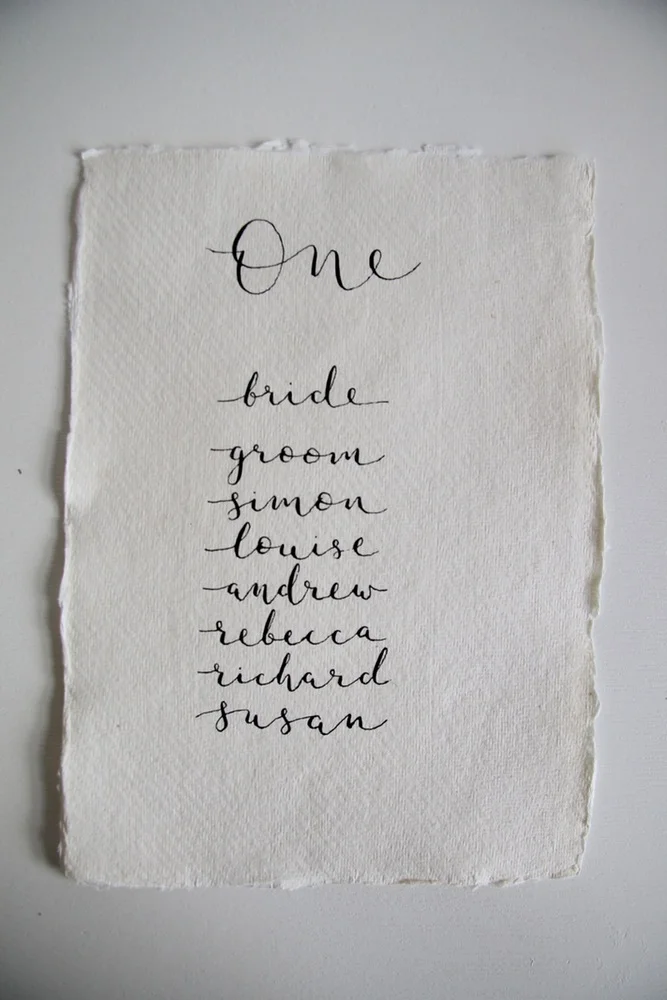 One
bride
groom
simon
louise
andrew
rebecca
richard
susan